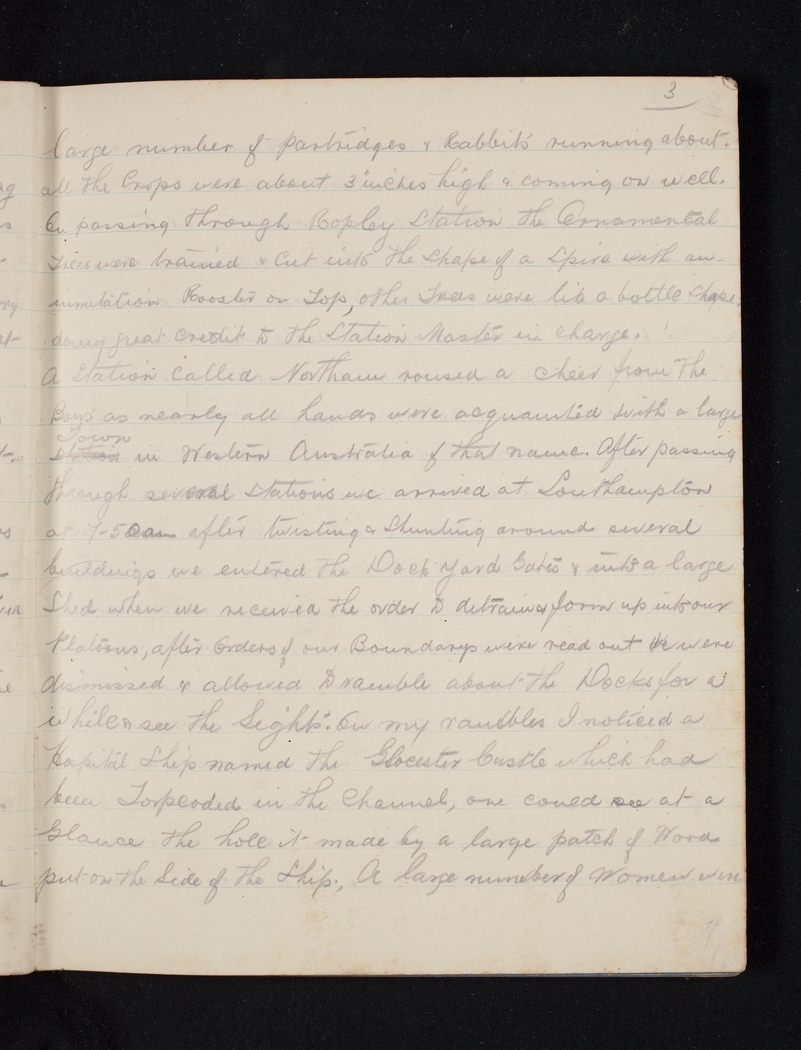 3
large number of partridges & Rabbits running about.
all the Crops were about 3 inches high & coming on well.
On passing through Ropley Station the Ornamental
Trees were trained & Cut into the Shape of a Spire with an
immitation Rooster on Top, other Trees were like a bottle Shape
doing great Credit to the Station Master in charge.
A Station Called Northam roused a cheer from the
Boys as nearly all hands were acquainted with a large
Town
Station in Western Australia of that name. After passing
through several Stations we arrived at Southampton
at 7-50am after twisting & Shunting around several
buildings we entered the Dock yard Gates & into a large
Shed when we received the order to detrain & form up into our
Platoons, after Orders of our Boundarys were read out we were
dismissed & allowed to ramble about the Docks for a
while & see the Sights. On my rambles I noticed a
Hospital Ship named the Glocester Castle which had
been Torpeoded in the Channel, one could see at a
Glance the hole it made by a large patch of Wood
put on the Side of the Ship., A large number of Women were